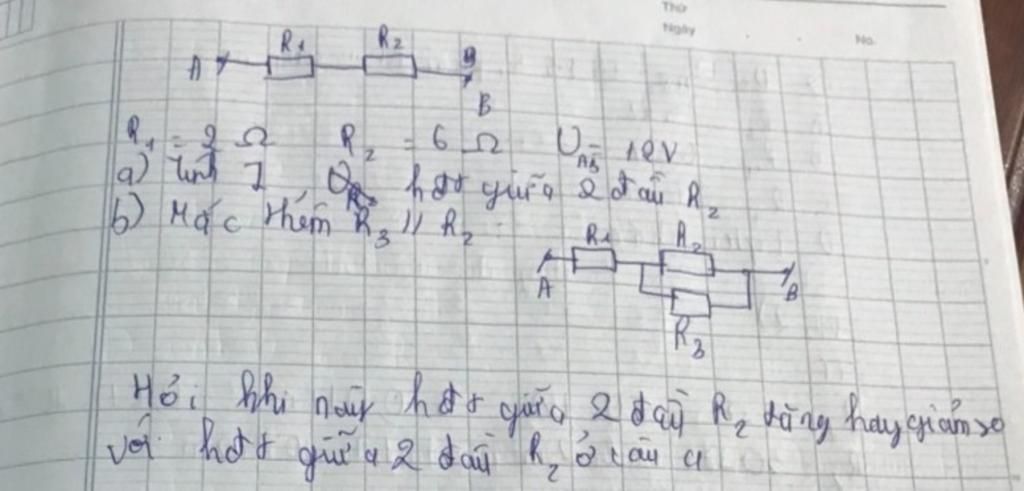 Thứ
Ngày
No.
R1 R2
A B
B
R1 = 2 Ω R2 = 6 Ω UAB = 12V
a) Tính I hđt giữa 2 đầu R2
b) Mắc thêm R3 // R2
R1 R2
A B
R3
Hỏi khi này hđt giữa 2 đầu R2 tăng hay giảm so
với hđt giữa 2 đầu R2 ở câu a